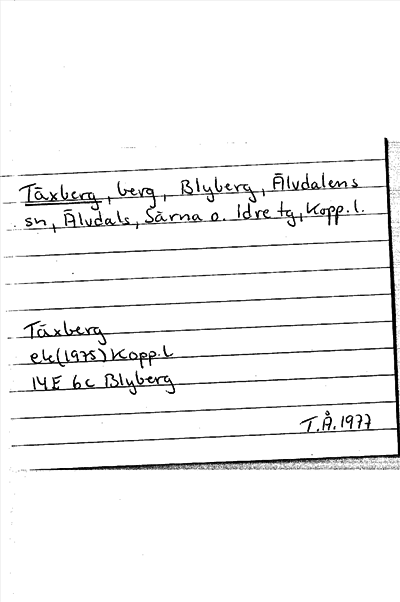 Täxberg, berg, Blyberg, Älvdalens
sn, Älvdals, Särna o. Idre tg, Kopp. l.
Täxberg
ek(1975) Kopp. l
14E 6c Blyberg
T.Å. 1977